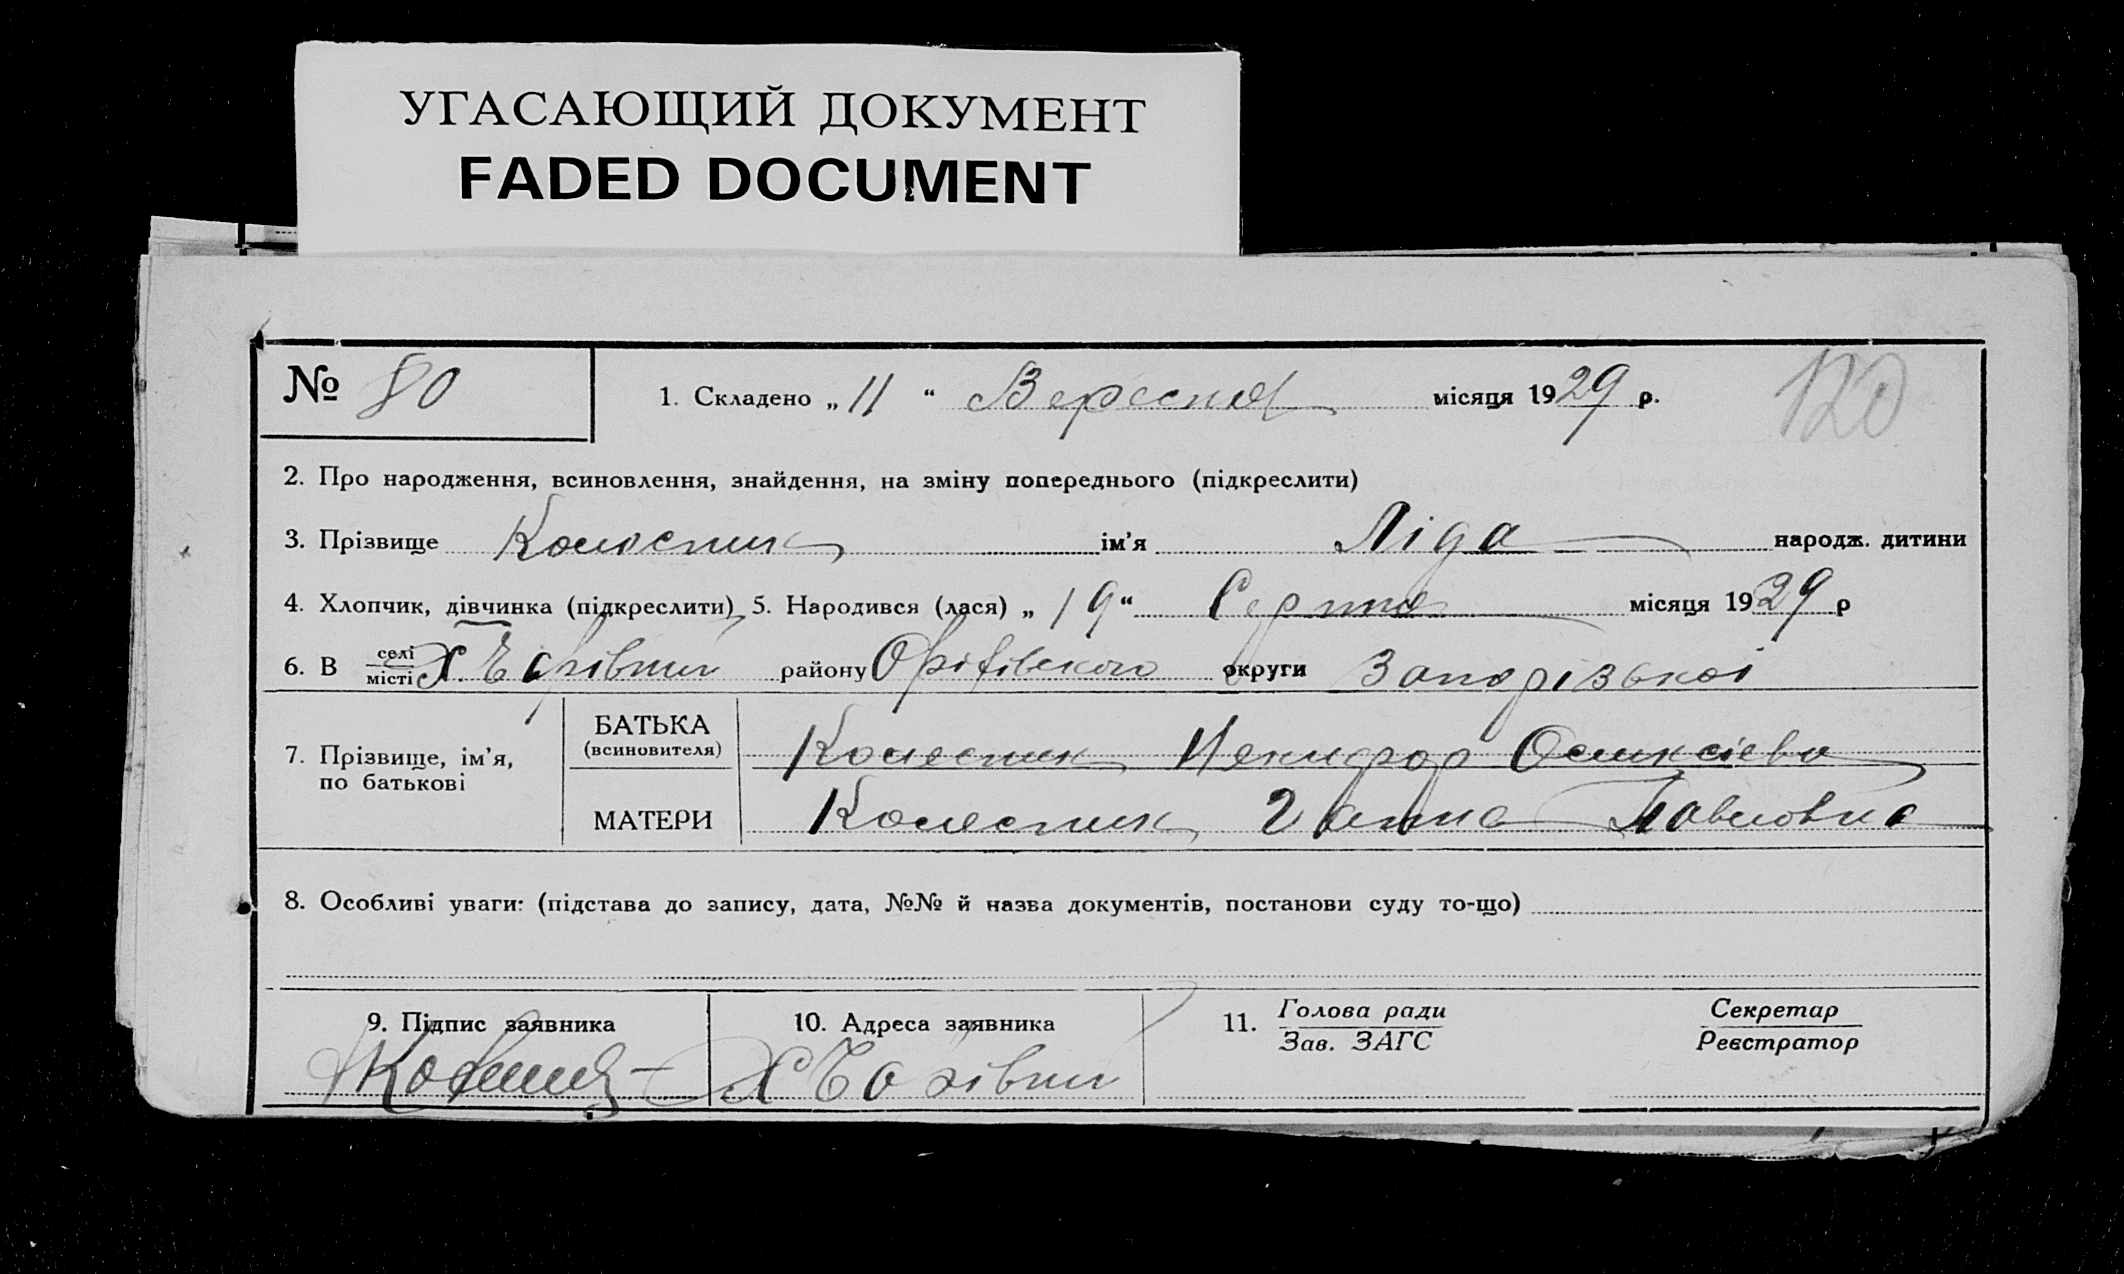 УГАСАЮЩИЙ ДОКУМЕНТ
FADED DOCUMENT
№ 80
1. Складено „ 11 “ Вересня місяця 1929 р.
120
2. Про народження, всиновлення, знайдення, на зміну попереднього (підкреслити)
3. Прізвище Колесник ім’я Ліда народж. дитини
4. Хлопчик, дівчинка (підкреслити) 5. Народився (лася) „ 19 “ Серпня місяця 1929 р
6. В селі місті Х. району Оріхівського округи Запорізької
7. Прізвище, ім’я, по батькові
БАТЬКА (всиновителя) Колесник
МАТЕРИ Колесник Ганна Павловна
8. Особливі уваги: (підстава до запису, дата, №№ й назва документів, постанови суду то-що)
9. Підпис заявника
10. Адреса заявника
Х
11. Голова ради Зав. ЗАГС
Секретар Реєстратор